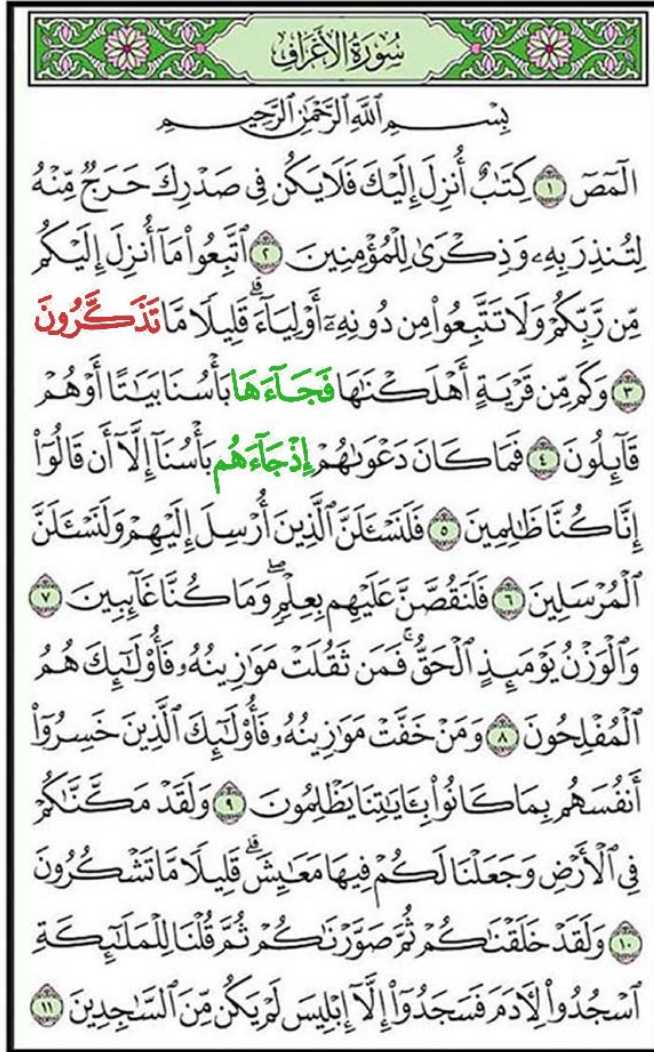 سُورَةُ الأَعْرَافِ
بِسْمِ ٱللَّهِ ٱلرَّحْمَٰنِ ٱلرَّحِيمِ
الٓمٓصٓ ١ كِتَٰبٌ أُنزِلَ إِلَيْكَ فَلَا يَكُن فِى صَدْرِكَ حَرَجٌ مِّنْهُ
لِتُنذِرَ بِهِۦ وَذِكْرَىٰ لِلْمُؤْمِنِينَ ٢ ٱتَّبِعُوا۟ مَآ أُنزِلَ إِلَيْكُم
مِّن رَّبِّكُمْ وَلَا تَتَّبِعُوا۟ مِن دُونِهِۦٓ أَوْلِيَآءَ ۗ قَلِيلًا مَّا تَذَكَّرُونَ
٣ وَكَم مِّن قَرْيَةٍ أَهْلَكْنَٰهَا فَجَآءَهَا بَأْسُنَا بَيَٰتًا أَوْ هُمْ
قَآئِلُونَ ٤ فَمَا كَانَ دَعْوَىٰهُمْ إِذْ جَآءَهُم بَأْسُنَآ إِلَّآ أَن قَالُوٓا۟
إِنَّا كُنَّا ظَٰلِمِينَ ٥ فَلَنَسْـَٔلَنَّ ٱلَّذِينَ أُرْسِلَ إِلَيْهِمْ وَلَنَسْـَٔلَنَّ
ٱلْمُرْسَلِينَ ٦ فَلَنَقُصَّنَّ عَلَيْهِم بِعِلْمٍ ۖ وَمَا كُنَّا غَآئِبِينَ ٧
وَٱلْوَزْنُ يَوْمَئِذٍ ٱلْحَقُّ ۚ فَمَن ثَقُلَتْ مَوَٰزِينُهُۥ فَأُو۟لَٰٓئِكَ هُمُ
ٱلْمُفْلِحُونَ ٨ وَمَنْ خَفَّتْ مَوَٰزِينُهُۥ فَأُو۟لَٰٓئِكَ ٱلَّذِينَ خَسِرُوٓا۟
أَنفُسَهُم بِمَا كَانُوا۟ بِـَٔايَٰتِنَا يَظْلِمُونَ ٩ وَلَقَدْ مَكَّنَّٰكُمْ
فِى ٱلْأَرْضِ وَجَعَلْنَا لَكُمْ فِيهَا مَعَٰيِشَ ۗ قَلِيلًا مَّا تَشْكُرُونَ
١٠ وَلَقَدْ خَلَقْنَٰكُمْ ثُمَّ صَوَّرْنَٰكُمْ ثُمَّ قُلْنَا لِلْمَلَٰٓئِكَةِ
ٱسْجُدُوا۟ لِـَٔادَمَ فَسَجَدُوٓا۟ إِلَّآ إِبْلِيسَ لَمْ يَكُن مِّنَ ٱلسَّٰجِدِينَ ١١